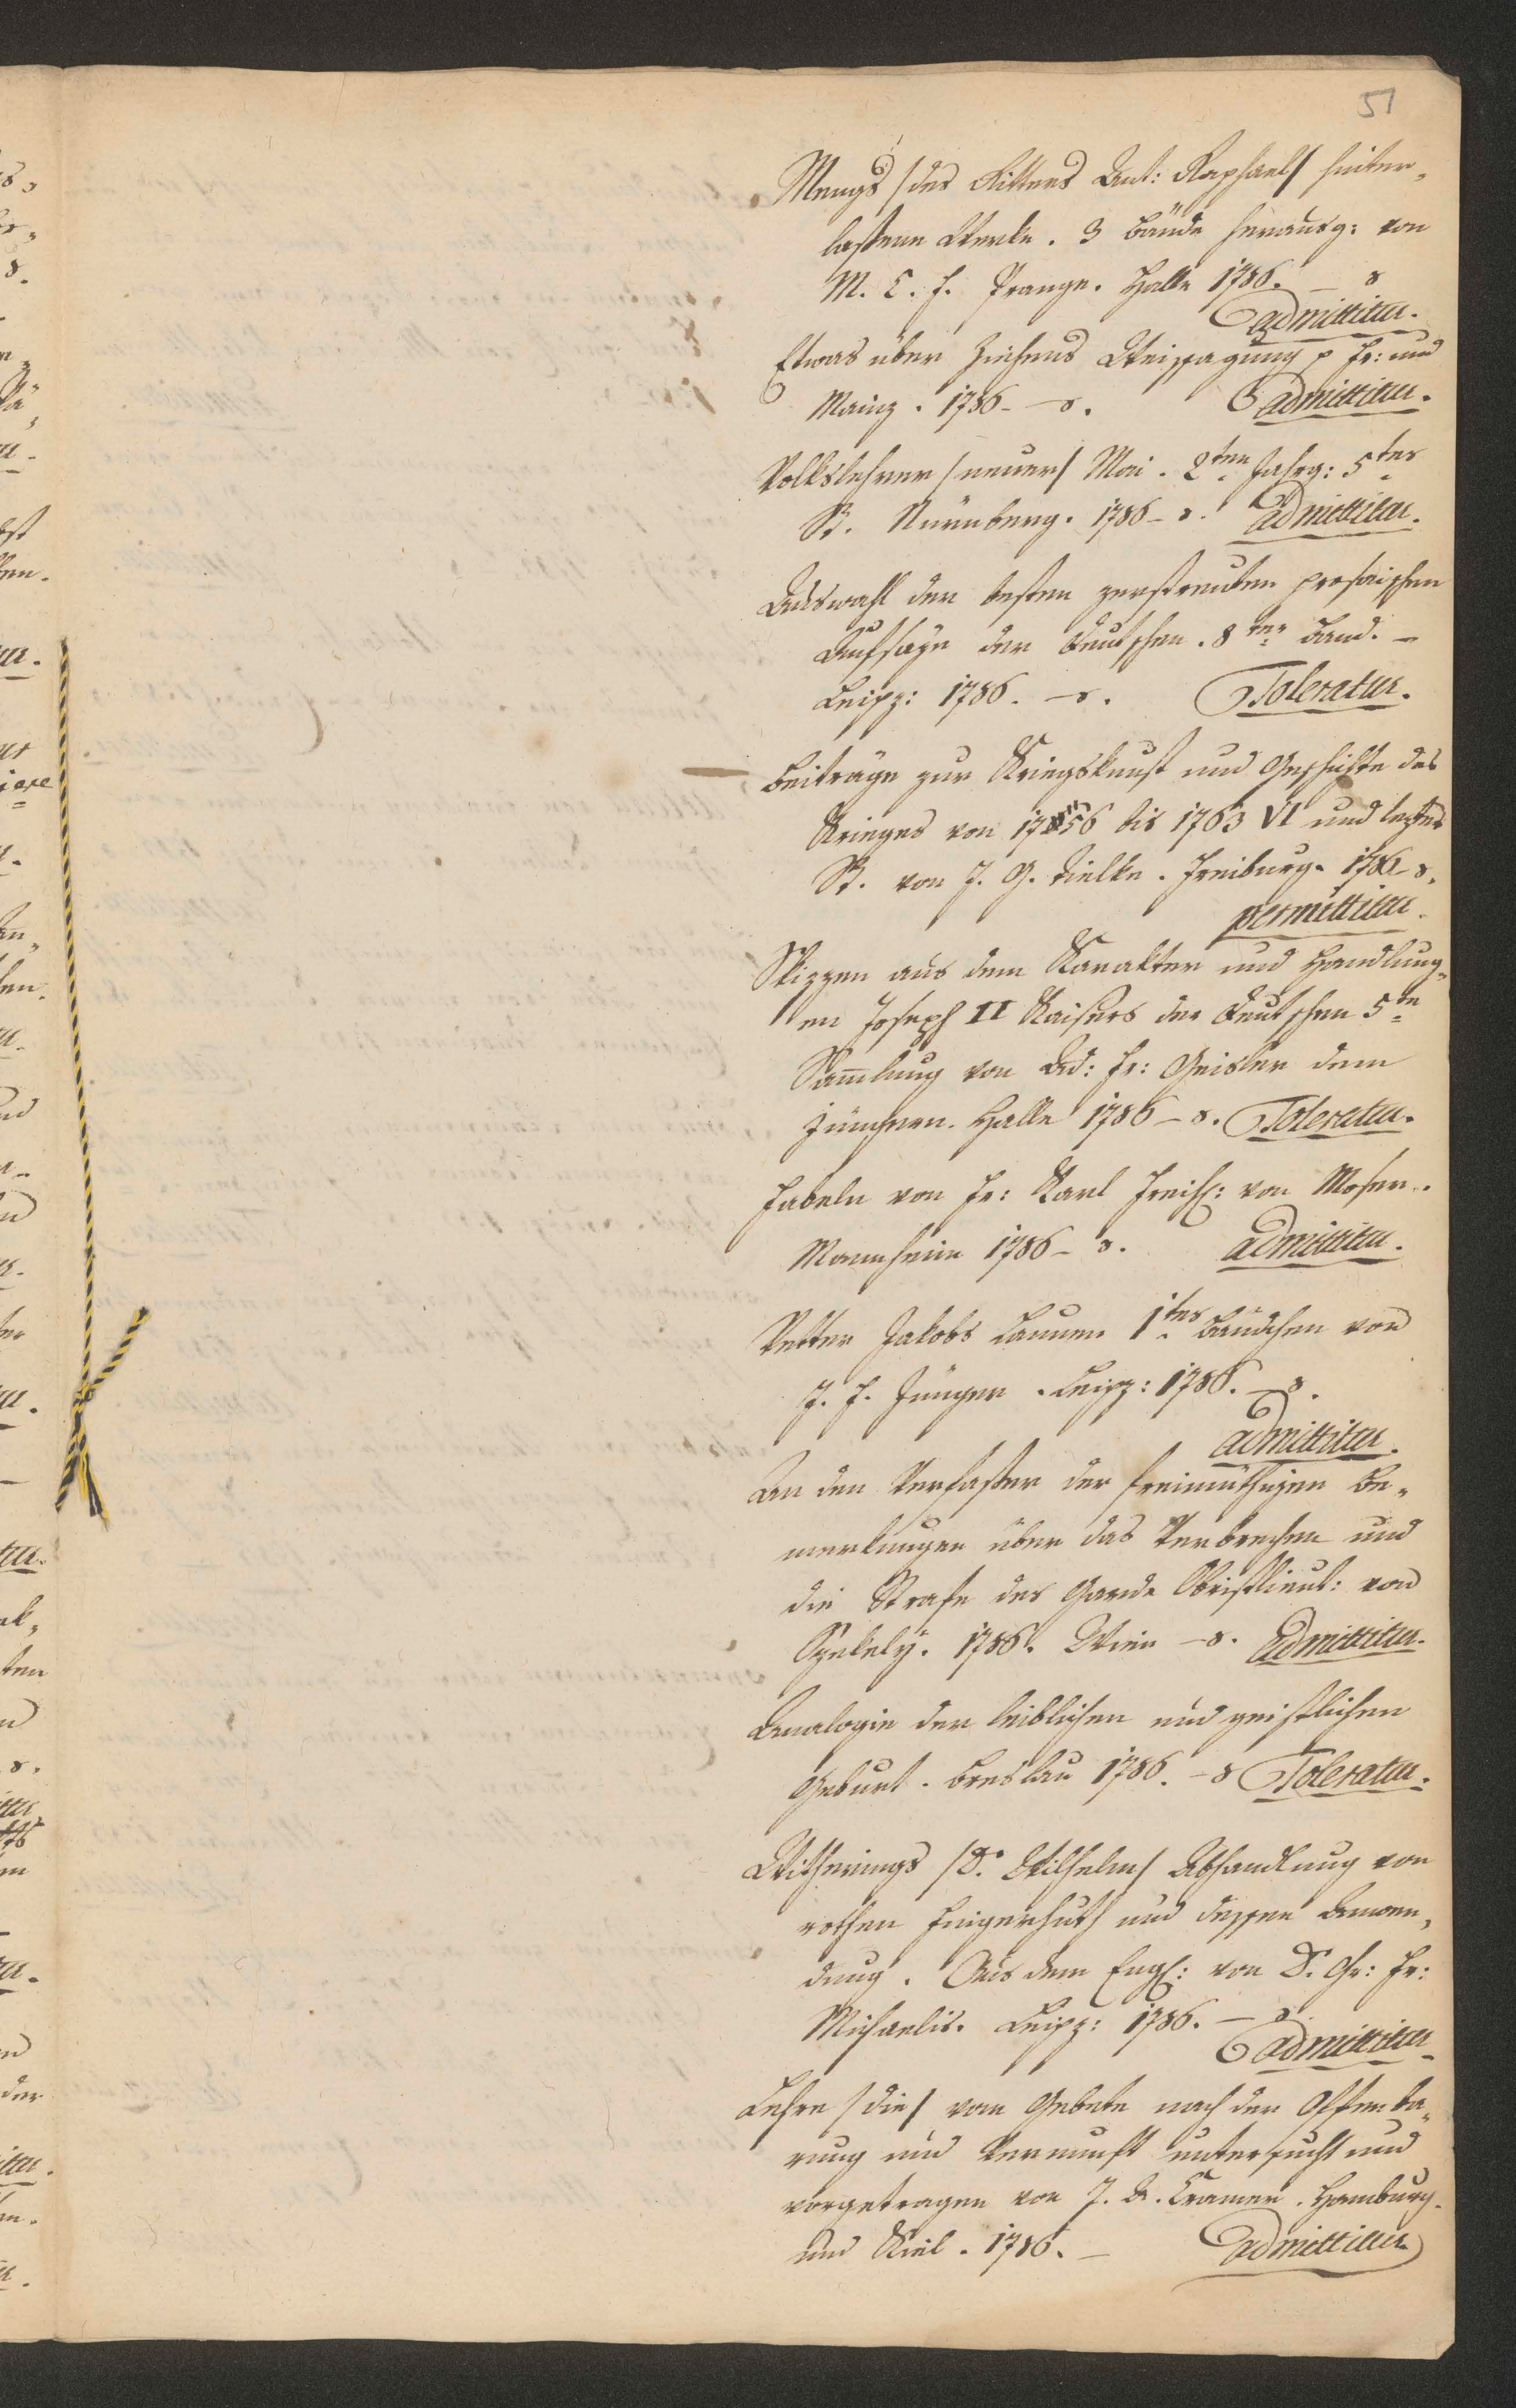 51
Mengs /des Ritters Ant: Raphael/ hinter„
laßene Werke. 3 Bände herausg: von
M. C. F. Prange. Halle 1786. – 8
admittitur.
Etwas über Ziehens Weissagung p Fr: und
Mainz. 1786 – 8. admittitur.
Volkslehrer /neuer/ Mai. 2ten Jahrg: 5tes
St. Nürnberg. 1786 – 8. admittitur.
Auswahl der besten zerstreuten prosaischen
Aufsäze der Deutschen. 8ter Band. –
Leipz: 1786. – 8. Toleratur.
Beiträge zur Kriegskunst und Geschichte des
Krieges von 1756 bis 1763 VI und leztes
St. von J. G. Tielke. Freiburg. 1786 – 8.
permittitur.
Skizzen aus dem Karakter und Handlung„
en Joseph II Kaisers der Deutschen 5te
Sammlung von Ad: Fr: Geisler dem
Jüngern. Halle 1786 – 8. Toleratur.
Fabeln von Fr: Karl Freih: von Moser.
Mannheim 1786 – 8. admittitur.
Vetter Jakobs Launen 1tes Bändchen von
J. F. Jünger. Leipz: 1786. – 8.
admittitur.
An den Verfaßer der freimüthigen Be„
merkungen über das Verbrechen und
die Strafe des Garde Obristlieut: von
Szekely. 1786. Wien – 8. admittitur.
Analogie der leiblichen und geistlichen
Geburt. Breslau 1786. – 8 Toleratur.
Witherings /D. Wilhelm/ Abhandlung von
rothen Fingerhuth und dessen Anwen„
dung. Aus dem Engl: von D. Chr: Fr:
Michaelis. Leipz: 1786. – 8.
admittitur
Lehre /die/ vom Gebete nach der Offenba„
rung und Vernunft untersucht und
vorgetragen von J. A. Cramer. Hamburg.
und Kiel. 1786. – admittitur